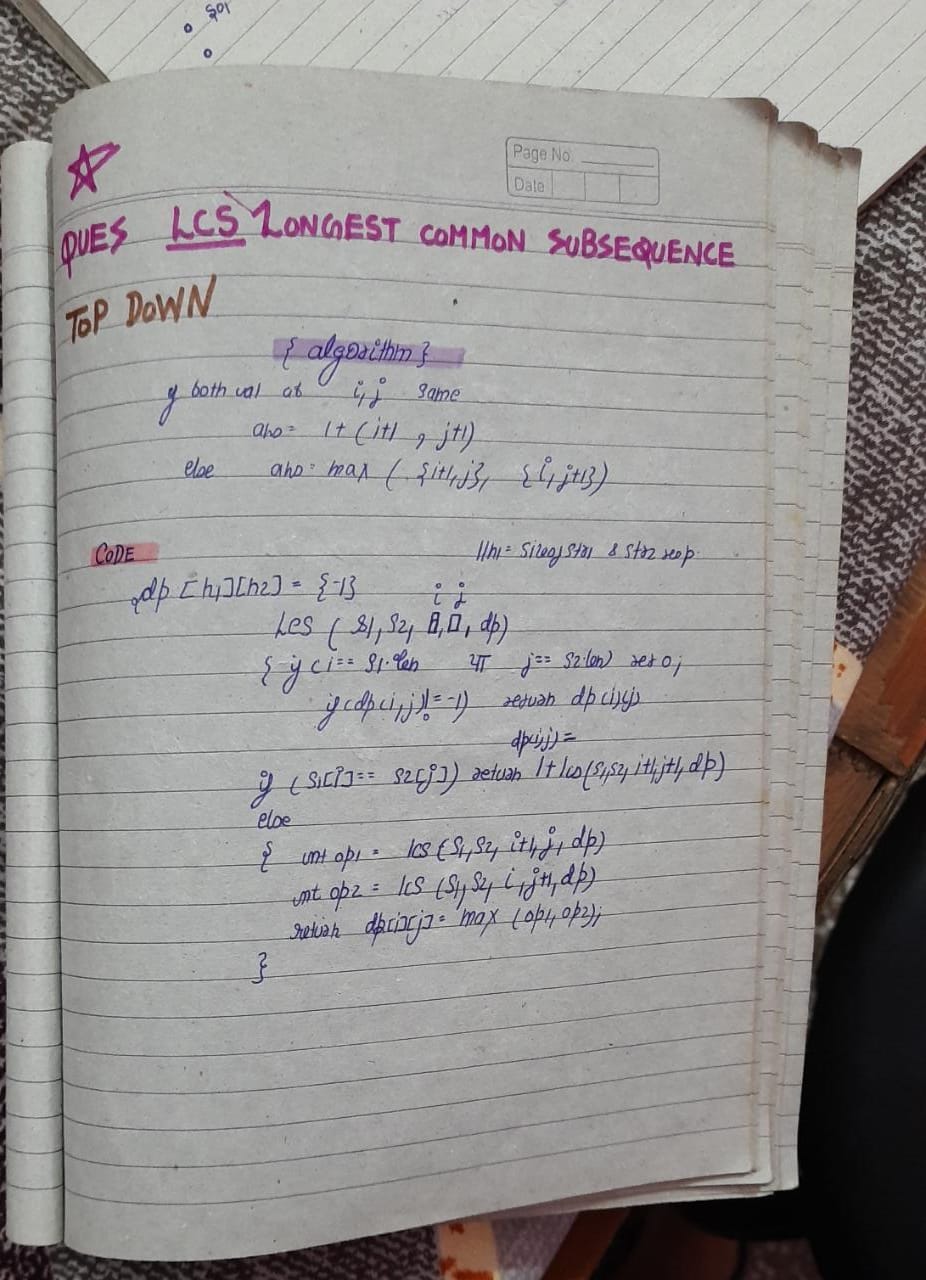 Page No.
Date
QUES LCS LONGEST COMMON SUBSEQUENCE
TOP DOWN
{ algorithm }
if both val at i, j same
ans = 1+ (i+1 , j+1)
else ans = max ( {i+1, j}, {i, j+1})
CODE
//n1 = size of str1 & str2 resp.
dp [n1][n2] = {-1}
i j
Lcs ( S1, S2, 0, 0, dp)
{ if (i == S1.len || j == S2.len) ret 0;
if (dp(i,j) != -1) return dp(i)(j)
dp(i,j) =
if (S1[i] == S2[j]) return 1+ lcs(S1,S2, i+1, j+1, dp)
else
{ int op1 = lcs (S1, S2, i+1, j, dp)
int op2 = lcs (S1, S2, i, j+1, dp)
return dp[i][j] = max (op1, op2);
}